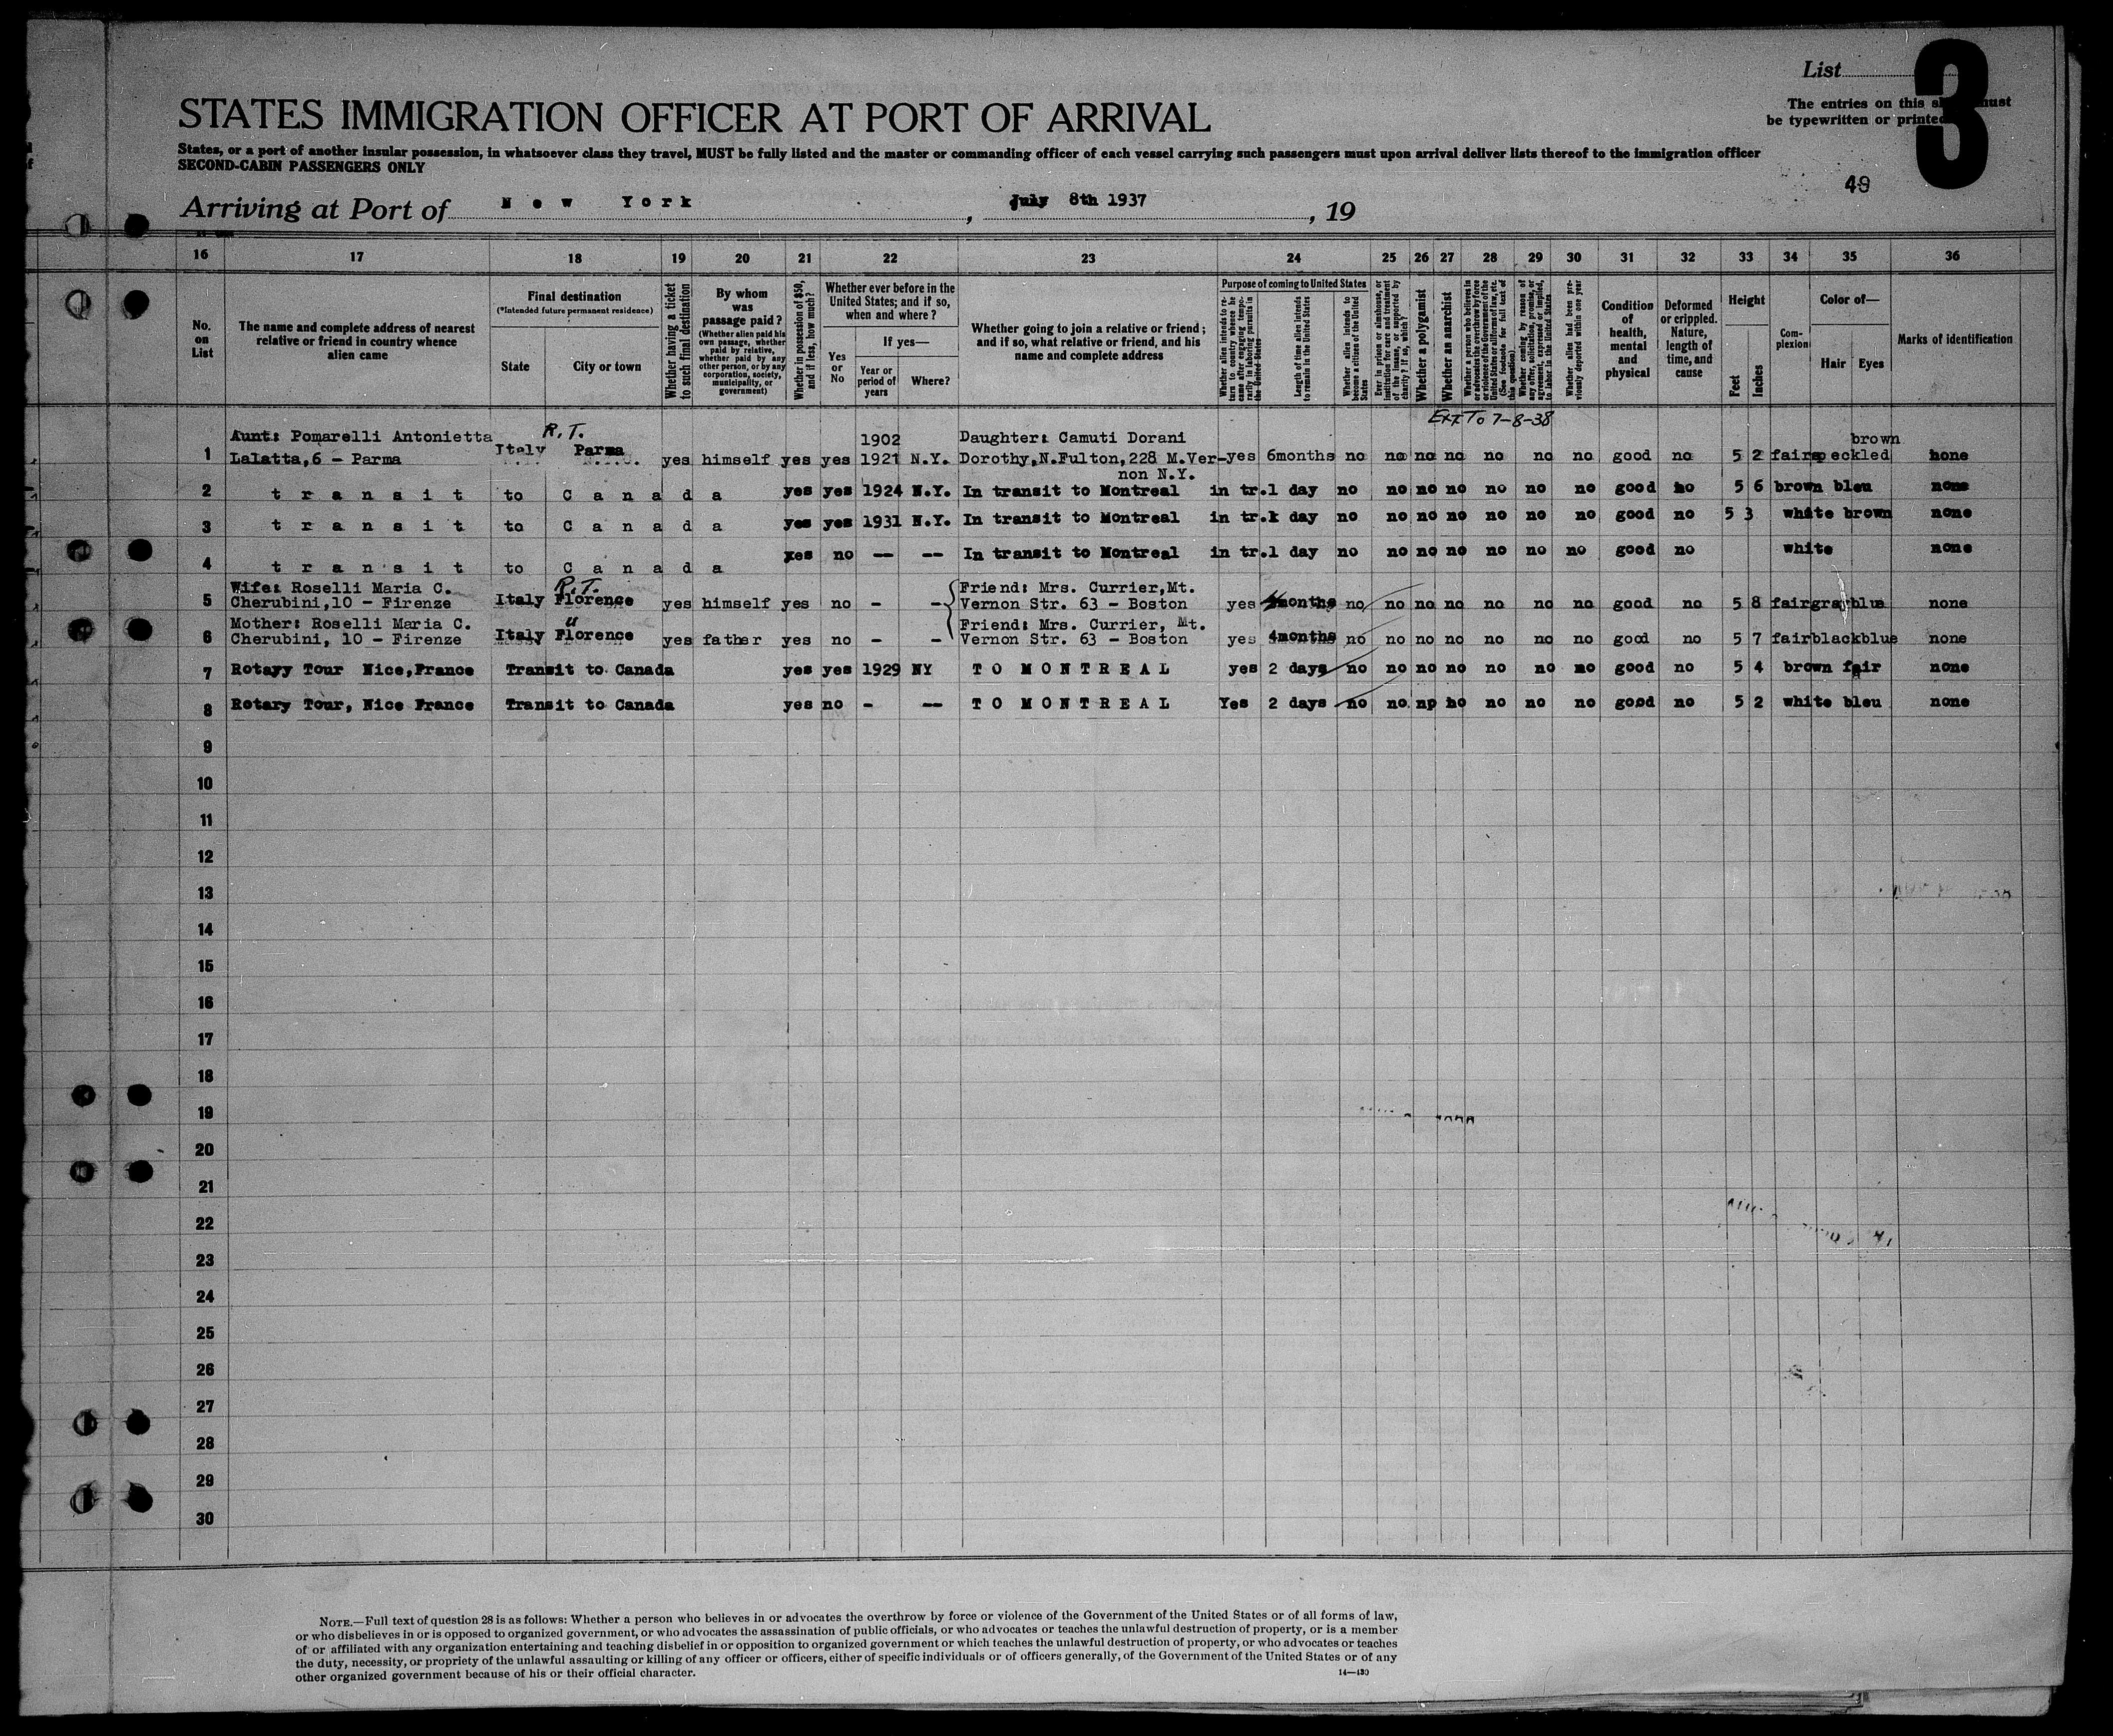 List 3
STATES IMMIGRATION OFFICER AT PORT OF ARRIVAL
The entries on this must
be typewritten or printed
States, or a port of another insular possession, in whatsoever class they travel, MUST be fully listed and the master or commanding officer of each vessel carrying such passengers must upon arrival deliver lists thereof to the immigration officer
SECOND-CABIN PASSENGERS ONLY
49
Arriving at Port of New York, July 8th 1937, 19
16 17 18 19 20 21 22 23 24 25 26 27 28 29 30 31 32 33 34 35 36
No. on List
The name and complete address of nearest relative or friend in country whence alien came
Final destination
(*Intended future permanent residence)
State
City or town
Whether having a ticket to such final destination
By whom was passage paid?
(Whether alien paid his own passage, whether paid by relative, whether paid by any other person, or by any corporation, society, municipality, or government)
Whether in possession of $50, and if less, how much?
Whether ever before in the United States; and if so, when and where?
Yes or No
If yes—
Year or period of years
Where?
Whether going to join a relative or friend; and if so, what relative or friend, and his name and complete address
Purpose of coming to United States
Whether alien intends to return to country whence he came after engaging temporarily in laboring pursuits in the United States
Length of time alien intends to remain in the United States
Whether alien intends to become a citizen of the United States
Ever in prison or almshouse, or institution for care and treatment of the insane, or supported by charity? If so, which?
Whether a polygamist
Whether an anarchist
Whether a person who believes in or advocates the overthrow by force or violence of the Government of the United States or all forms of law, etc. (See footnote for full text of this question)
Whether coming by reason of any offer, solicitation, promise, or agreement, expressed or implied, to labor in the United States
Whether alien had been previously deported within one year
Condition of health, mental and physical
Deformed or crippled. Nature, length of time, and cause
Height
Feet
Inches
Complexion
Color of—
Hair
Eyes
Marks of identification
Ext To 7-8-38
Aunt: Pomarelli Antonietta R.T. 1902 Daughter: Camuti Dorani brown
1 Lalatta,6 - Parma Italy Parma yes himself yes yes 1921 N.Y. Dorothy,N.Fulton,228 M.Ver- yes 6months no no no no no no no good no 5 2 fair speckled none
non N.Y.
2 transit to Canada yes yes 1924 N.Y. In transit to Montreal in tr.1 day no no no no no no no good no 5 6 brown bleu none
3 transit to Canada yes yes 1931 N.Y. In transit to Montreal in tr.1 day no no no no no no no good no 5 3 white brown none
4 transit to Canada yes no -- -- In transit to Montreal in tr.1 day no no no no no no no good no white none
Wife: Roselli Maria C. R.T. Friend: Mrs. Currier,Mt.
5 Cherubini,10 - Firenze Italy Florence yes himself yes no - - Vernon Str. 63 - Boston yes 4months no no no no no no no good no 5 8 fair gray blue none
Mother: Roselli Maria C. " Friend: Mrs. Currier, Mt.
6 Cherubini, 10 - Firenze Italy Florence yes father yes no - - Vernon Str. 63 - Boston yes 4months no no no no no no no good no 5 7 fair black blue none
7 Rotary Tour Nice,France Transit to Canada yes yes 1929 NY TO MONTREAL yes 2 days no no no no no no no good no 5 4 brown fair none
8 Rotary Tour, Nice France Transit to Canada yes no - -- TO MONTREAL Yes 2 days no no no no no no no good no 5 2 white bleu none
9
10
11
12
13
14
15
16
17
18
19
20
21
22
23
24
25
26
27
28
29
30
NOTE.—Full text of question 28 is as follows: Whether a person who believes in or advocates the overthrow by force or violence of the Government of the United States or of all forms of law,
or who disbelieves in or is opposed to organized government, or who advocates the assassination of public officials, or who advocates or teaches the unlawful destruction of property, or is a member
of or affiliated with any organization entertaining and teaching disbelief in or opposition to organized government or which teaches the unlawful destruction of property, or who advocates or teaches
the duty, necessity, or propriety of the unlawful assaulting or killing of any officer or officers, either of specific individuals or of officers generally, of the Government of the United States or of any
other organized government because of his or their official character.
14—130